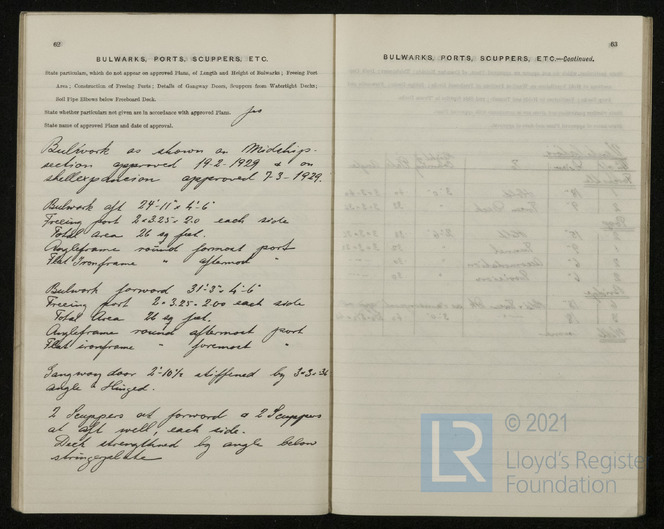 62
BULWARKS, PORTS, SCUPPERS, ETC.
State particulars, which do not appear on approved Plans, of Length and Height of Bulwarks; Freeing Port
Area; Construction of Freeing Ports; Details of Gangway Doors, Scuppers from Watertight Decks;
Soil Pipe Elbows below Freeboard Deck.
State whether particulars not given are in accordance with approved Plans. Yes
State name of approved Plans and date of approval.
Bulwork as shown on Midship-
section approved 19-2-1929 & on
shellexpancion approved 7-3-1929.
Bulwork aft 24'-11" x 4'-6"
Freeing port 2 x 3.25 x 2.0 each side
Total area 26 sq feet.
Angleframe round formost port
Flat Ironframe " aftermost "
Bulwork forward 31'-3" x 4'-6"
Freeing port 2 x 3.25 x 2.00 each side
Total Area 26 sq feet.
Angleframe round aftermost port
Flat ironframe " foremost "
Gangway door 2'-10½ stiffened by 3 x 3 x 36
angle & Hinged.
2 Scuppers at forward & 2 Scuppers
at aft well, each side.
Deck strengthned by angle below
stringerplate
63
BULWARKS, PORTS, SCUPPERS, ETC.—Continued.
LR
© 2021
Lloyd's Register
Foundation